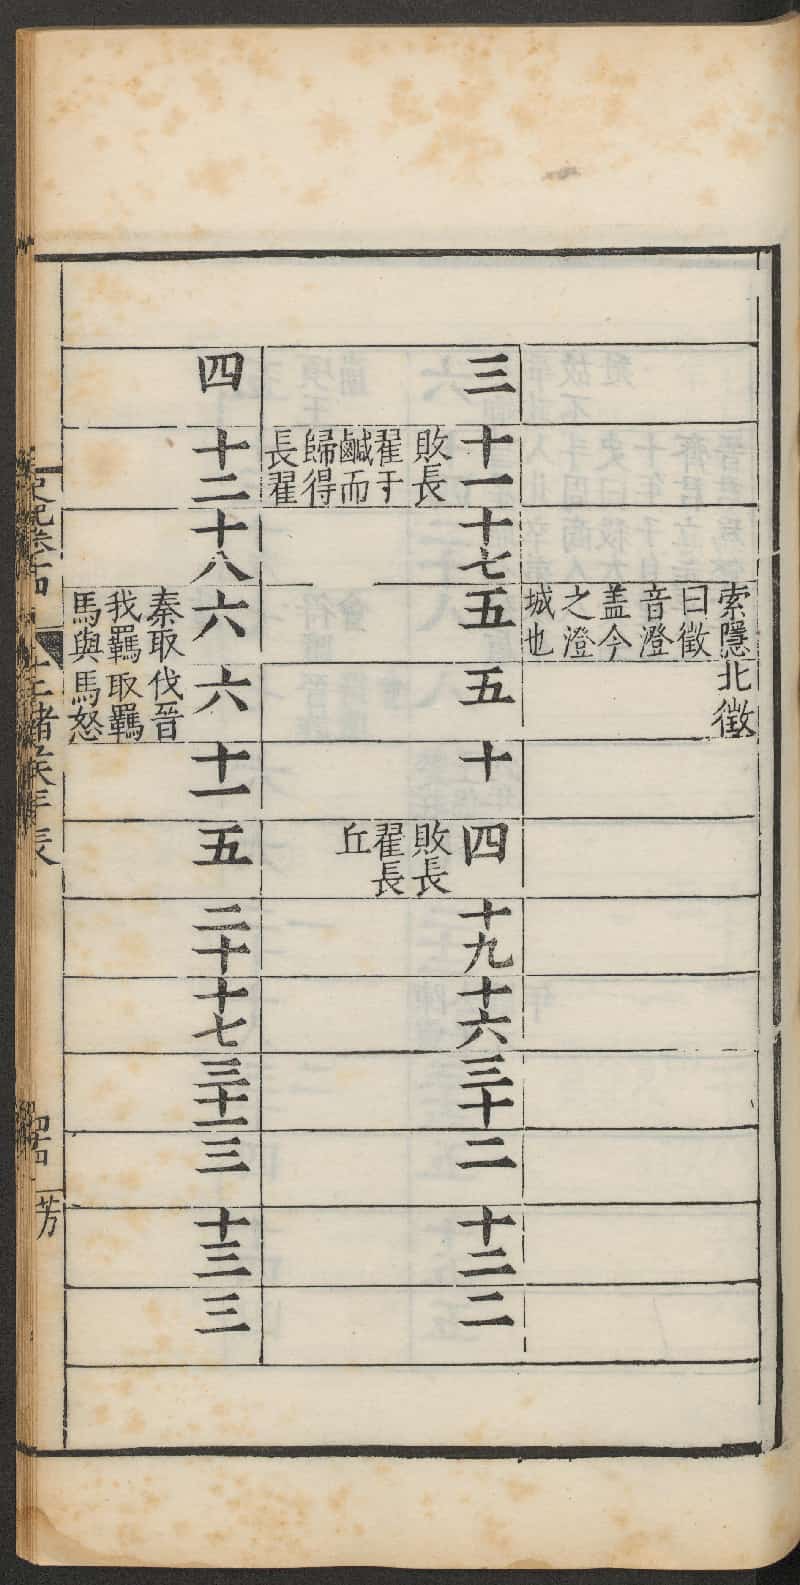 索隱
曰徵
音澄
蓋今
之澄
城也
北徵
三
十一
敗長
翟于
鹹而
歸得
長翟
十七
五
五
十
四
敗長
翟長
丘
十九
十六
三十
二
十二
二
四
十二
十八
六
秦取
我羈
馬與
伐晉
取羈
馬怒
六
十一
五
二十
十七
三十一
三
十三
三
十二諸侯年表
芳